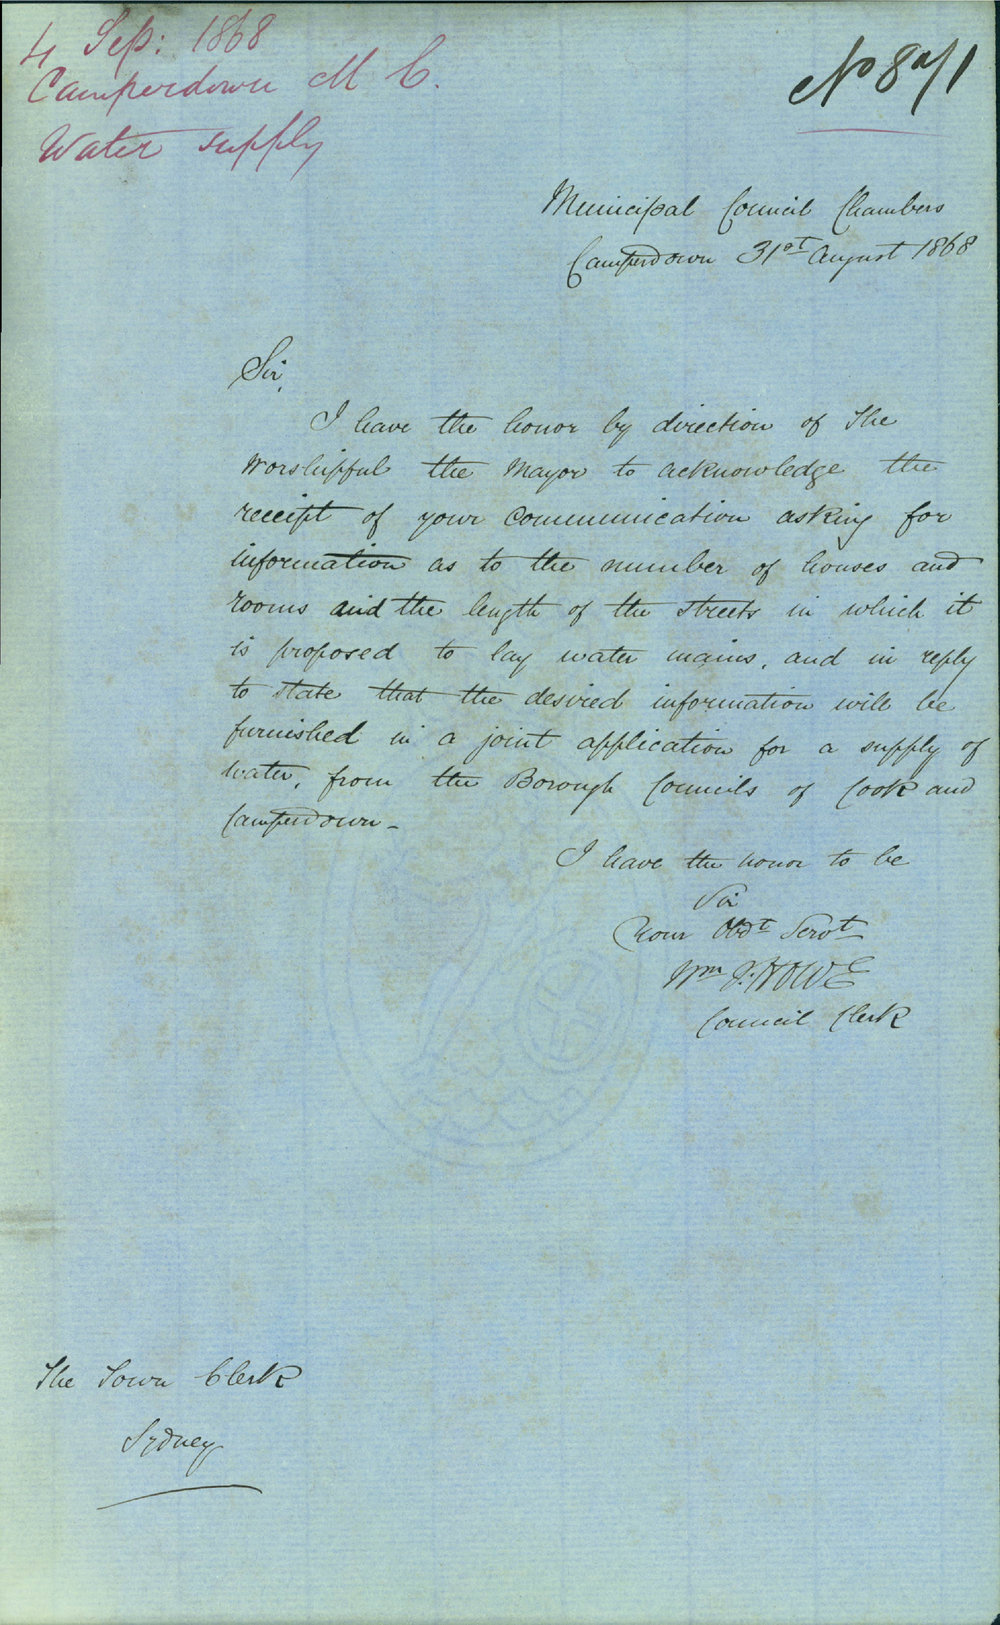 4 Sep: 1868
Camperdown M C.
Water supply
Municipal Council Chambers
Camperdown 31st August 1868
Sir,
I have the honor by direction of The
Worshipful the Mayor to acknowledge the
receipt of your communication asking for
information as to the number of houses and
rooms and the length of the streets in which it
is proposed to lay water mains, and in reply
to state that the desired information will be
furnished in a joint application for a supply of
water, from the Borough Councils of Cook and
Camperdown -
I have the honor to be
Sir
Your Obdt Servt
Wm J. HOWE
Council Clerk
The Town Clerk
Sydney